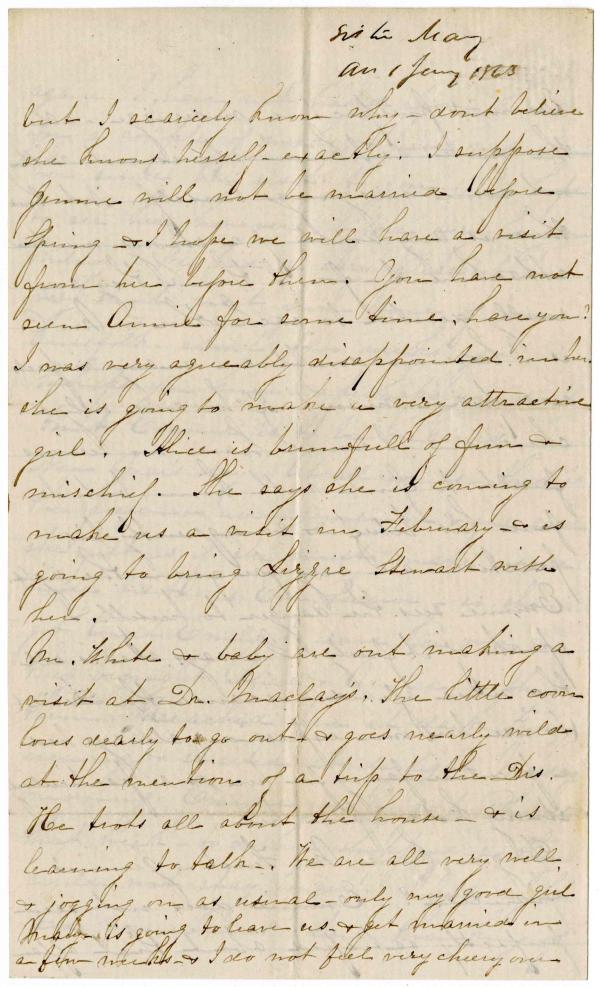 Sister Mary
an 1 Jany 1863
but I scarcely know why - dont believe
she knows herself - exactly. I suppose
Jennie will not be married before
Spring - & I hope we will have a visit
from her before then. You have not
seen Annie for some time, have you?
I was very agreeably disappointed in her.
she is going to make a very attractive
girl. Alice is brimfull of fun &
mischief. She says she is coming to
make us a visit in February - & is
going to bring Lizzie Stewart with
her.
Mr. White & baby are out making a
visit at Dr. Maclay's. The little coon
loves dearly to go out - & goes nearly wild
at the mention of a trip to the Drs.
He trots all about the house - & is
learning to talk -. We are all very well
& jogging on as usual - only my good girl
is going to leave us - & get married in
a few weeks - & I do not feel very cheery over